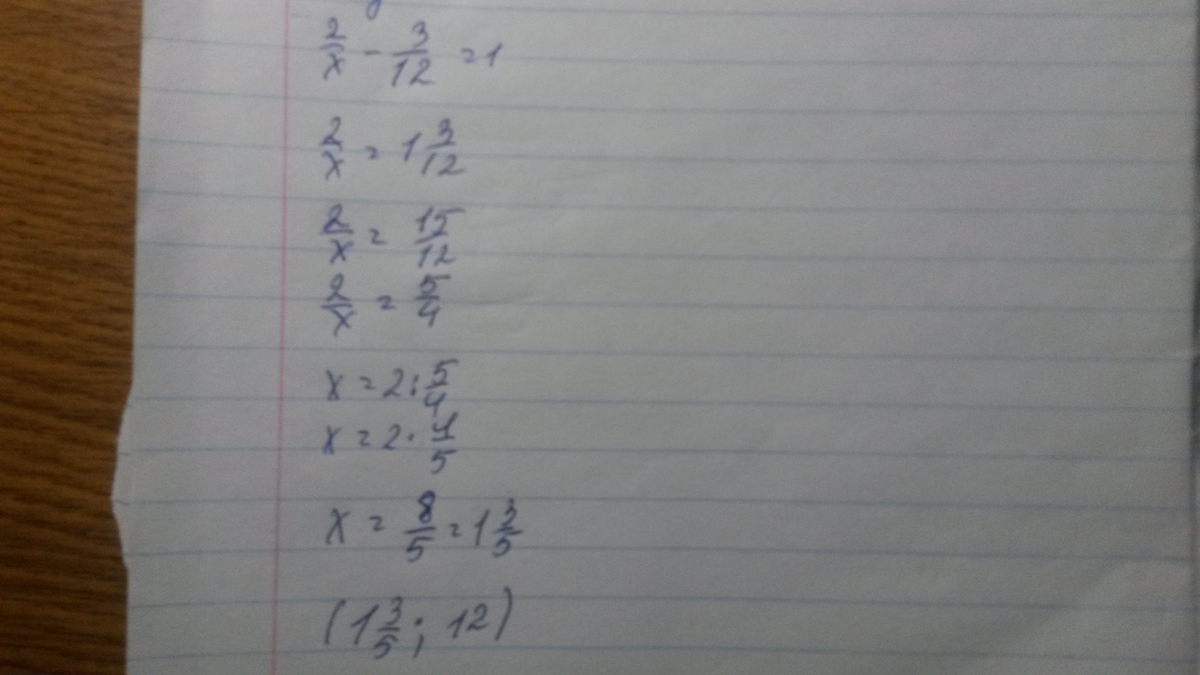 2/x - 3/12 = 1
2/x = 1 3/12
2/x = 15/12
2/x = 5/4
x = 2 : 5/4
x = 2 · 4/5
x = 8/5 = 1 3/5
(1 3/5; 12)